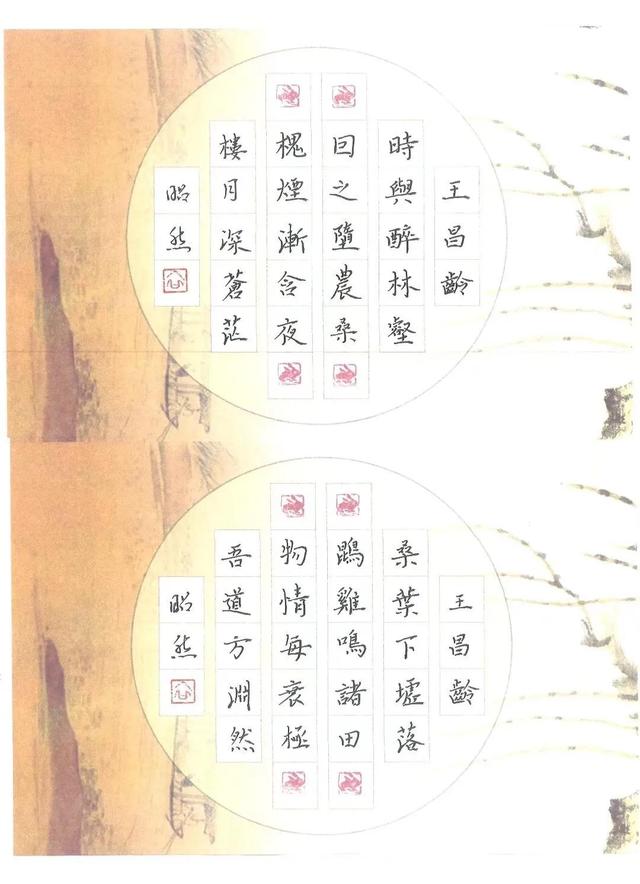 王昌齡
時與醉林壑
回之墮農桑
槐煙漸含夜
樓月深蒼茫
昭然
王昌齡
桑葉下墟落
鵾雞鳴諸田
物情每衰極
吾道方淵然
昭然